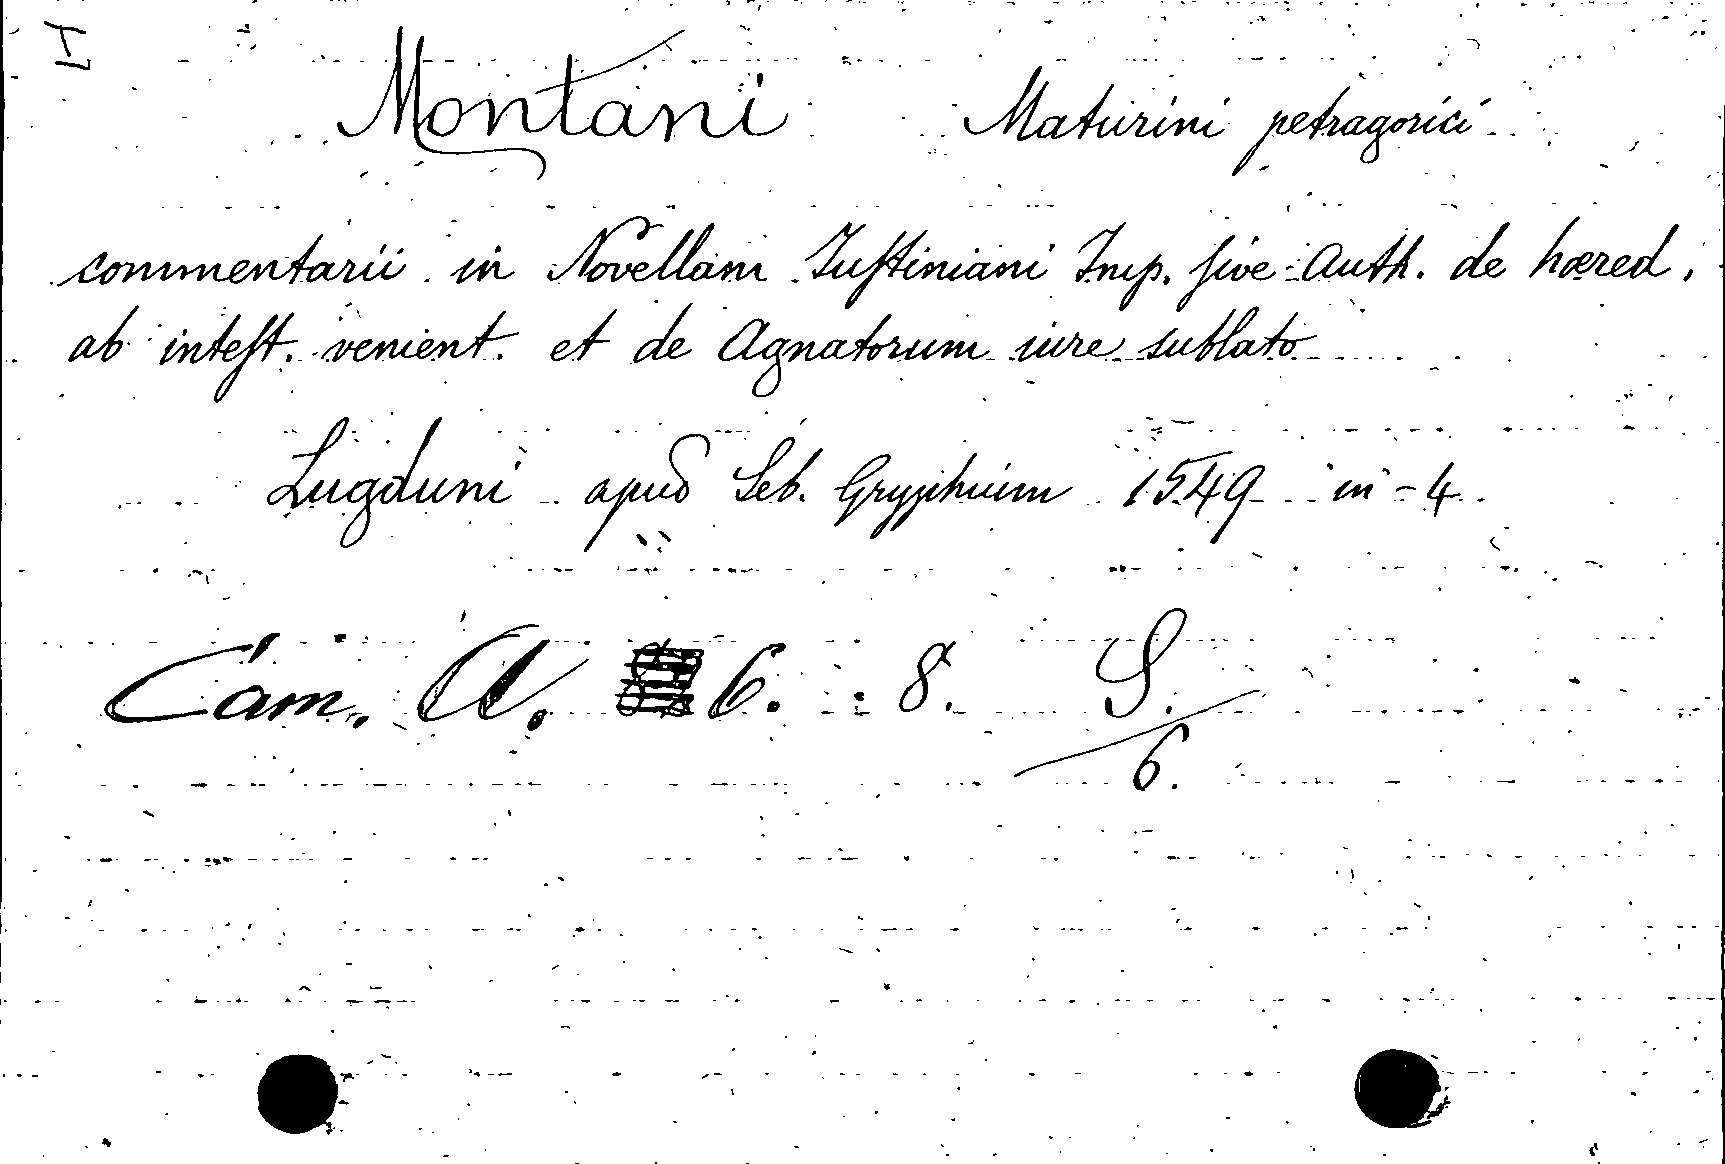 Montani Maturini petragorici
commentarii in Novellam Iuſtiniani Imp. ſive Auth. de hæred.
ab inteſt. venient. et de Agnatorum iure sublato
Lugduni apud Seb. Gryphium 1549 in-4
Cam. A. 6. 8. S.
6.